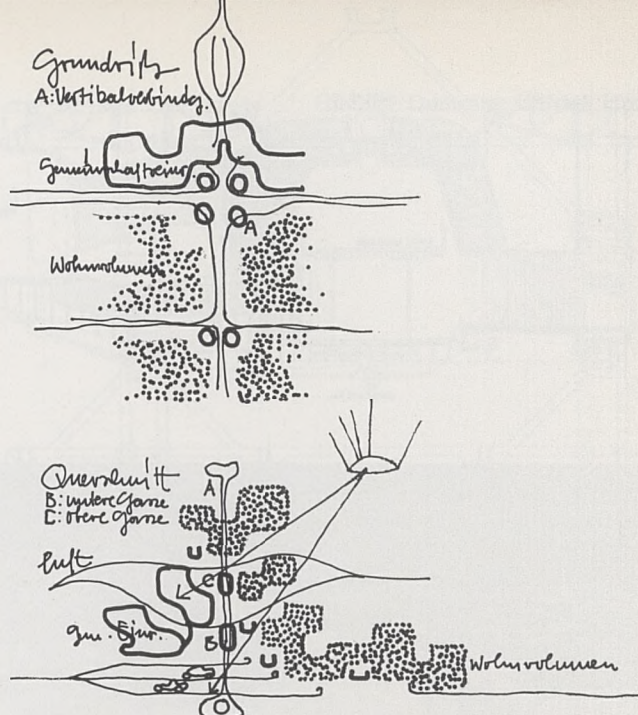 Grundriß
A: Vertikalverbindg.
Gemeinschaftseinr.
A
Wohnvolumen
Querschnitt
B: untere Gasse
C: obere Gasse
A
Luft
C
gem. Einr.
B
Wohnvolumen